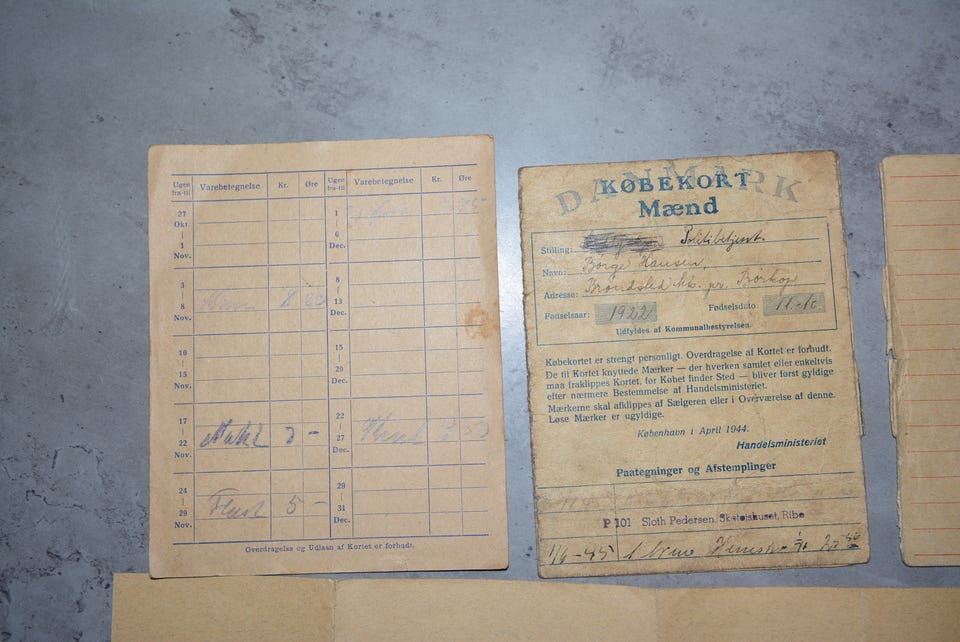 Ugen
fra-til
Varebetegnelse
Kr.
Øre
Ugen
fra-til
Varebetegnelse
Kr.
Øre
27
Okt.
|
1
Nov.
1
|
6
Dec.
3
|
8
Nov.
8
|
13
Dec.
10
|
15
Nov.
15
|
20
Dec.
17
|
22
Nov.
22
|
27
Dec.
24
|
29
Nov.
5 -
29
|
31
Dec.
Overdragelse og Udlaan af Kortet er forbudt.
DANMARK
KØBEKORT
Mænd
Stilling: Politibetjent.
Navn: Børge Hansen,
Adresse: Brøndsted Mk. pr. Børkop
Fødselsaar: 1922 Fødselsdato 11.-10.
Udfyldes af Kommunalbestyrelsen.
Købekortet er strengt personligt. Overdragelse af Kortet er forbudt.
De til Kortet knyttede Mærker — der hverken samlet eller enkeltvis
maa fraklippes Kortet, før Købet finder Sted — bliver først gyldige
efter nærmere Bestemmelse af Handelsministeriet.
Mærkerne skal afklippes af Sælgeren eller i Overværelse af denne.
Løse Mærker er ugyldige.
København i April 1944.
Handelsministeriet
Paategninger og Afstemplinger
P 101 Sloth Pedersen, Skotøishuset, Ribe
1/6 -45